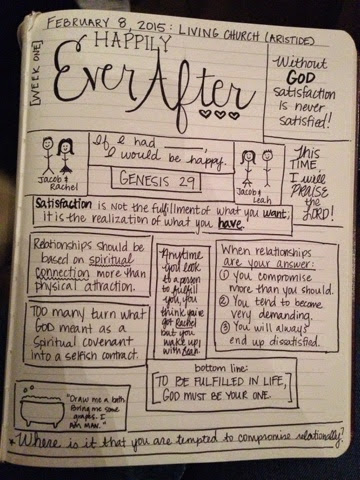 FEBRUARY 8, 2015: LIVING CHURCH (ARISTIDE)
[WEEK ONE]
HAPPILY
Ever After
Without
GOD
satisfaction
is never
satisfied!
Jacob &
Rachel
If I had ______,
I would be happy.
GENESIS 29
Jacob &
Leah
This
TIME,
I will
PRAISE
the
LORD!
Satisfaction is not the fulfillment of what you want;
it is the realization of what you have.
Relationships should be
based on spiritual
connection more than
physical attraction.
Too many turn what
GOD meant as a
Spiritual covenant
into a selfish contract.
Anytime
you look
to a person
to fulfill
you, you
think you've
got Rachel
but you
wake up
with Leah.
When relationships
are your answer:
① You compromise
more than you should.
② You tend to become
very demanding.
③ You will always
end up dissatisfied.
bottom line:
TO BE FULFILLED IN LIFE,
GOD MUST BE YOUR ONE.
"Draw me a bath.
Bring me some
grapes. I
AM MAN."
*Where is it that you are tempted to compromise relationally?